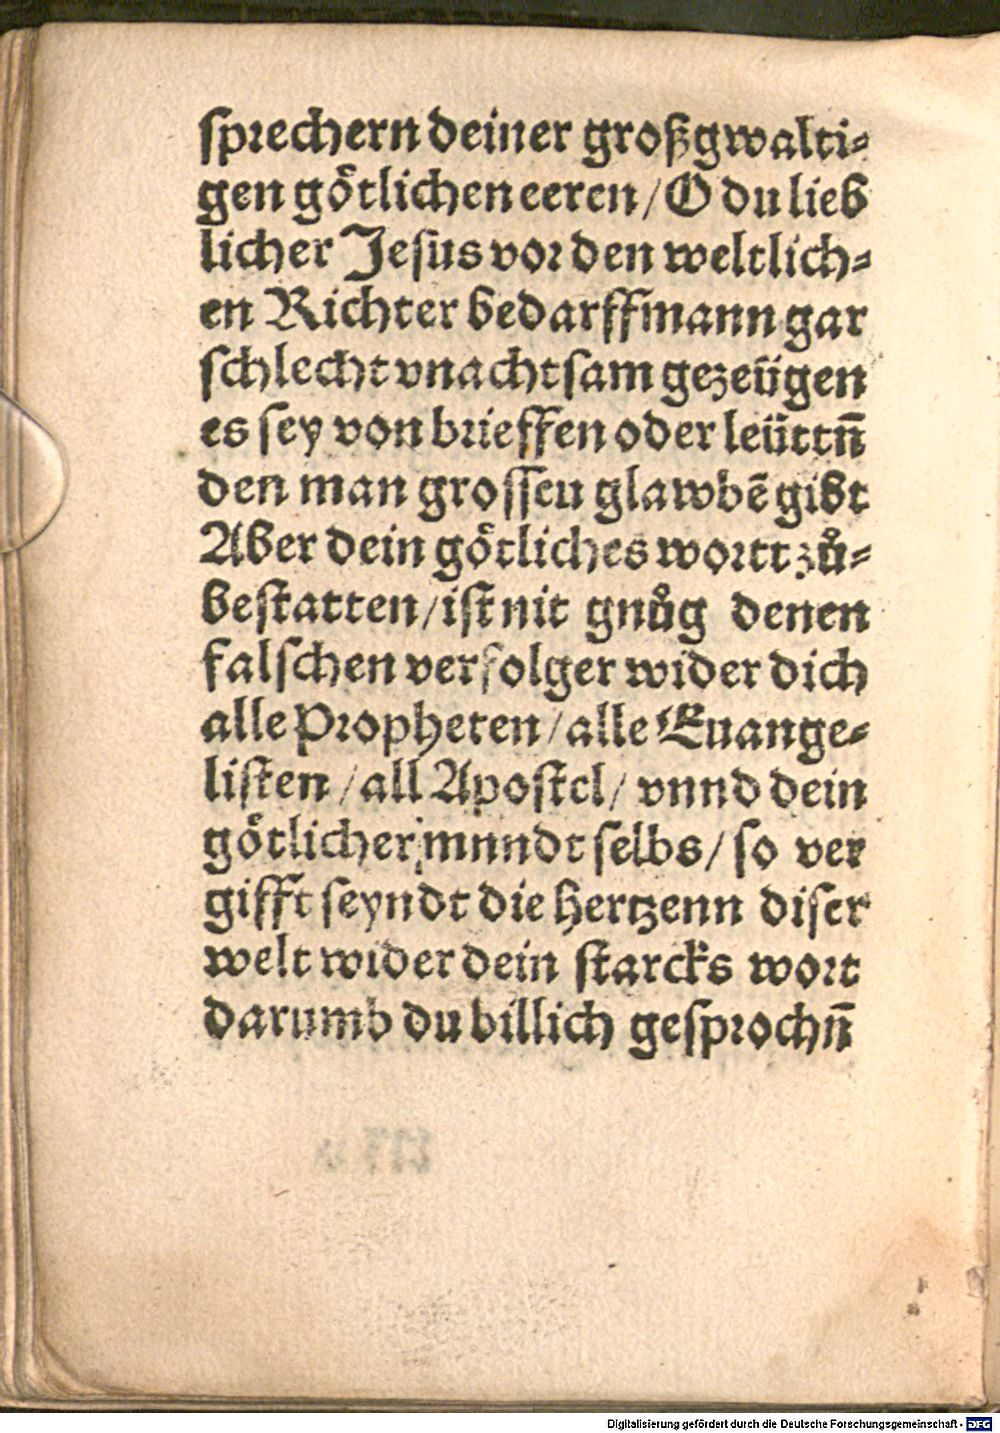 sprechern deiner großgwalti⸗
gen goͤtlichen eeren / O du lieb
licher Jesus vor den weltlich⸗
en Richter bedarff mann gar
schlecht vnachtsam gezeügen
es sey von brieffen oder leüttn̄
den man grosseu glawbē gibt
Aber dein goͤtliches wortt zuͦ⸗
bestatten / ist nit gnuͦg denen
falschen verfolger wider dich
alle Propheten / alle Euange⸗
listen / all Apostel / vnnd dein
goͤtlicher mnndt selbs / so ver
gifft seyndt die hertzenn diser
welt wider dein starcks wort
darumb du billich gesprochn̄
Digitalisierung gefördert durch die Deutsche Forschungsgemeinschaft - DFG